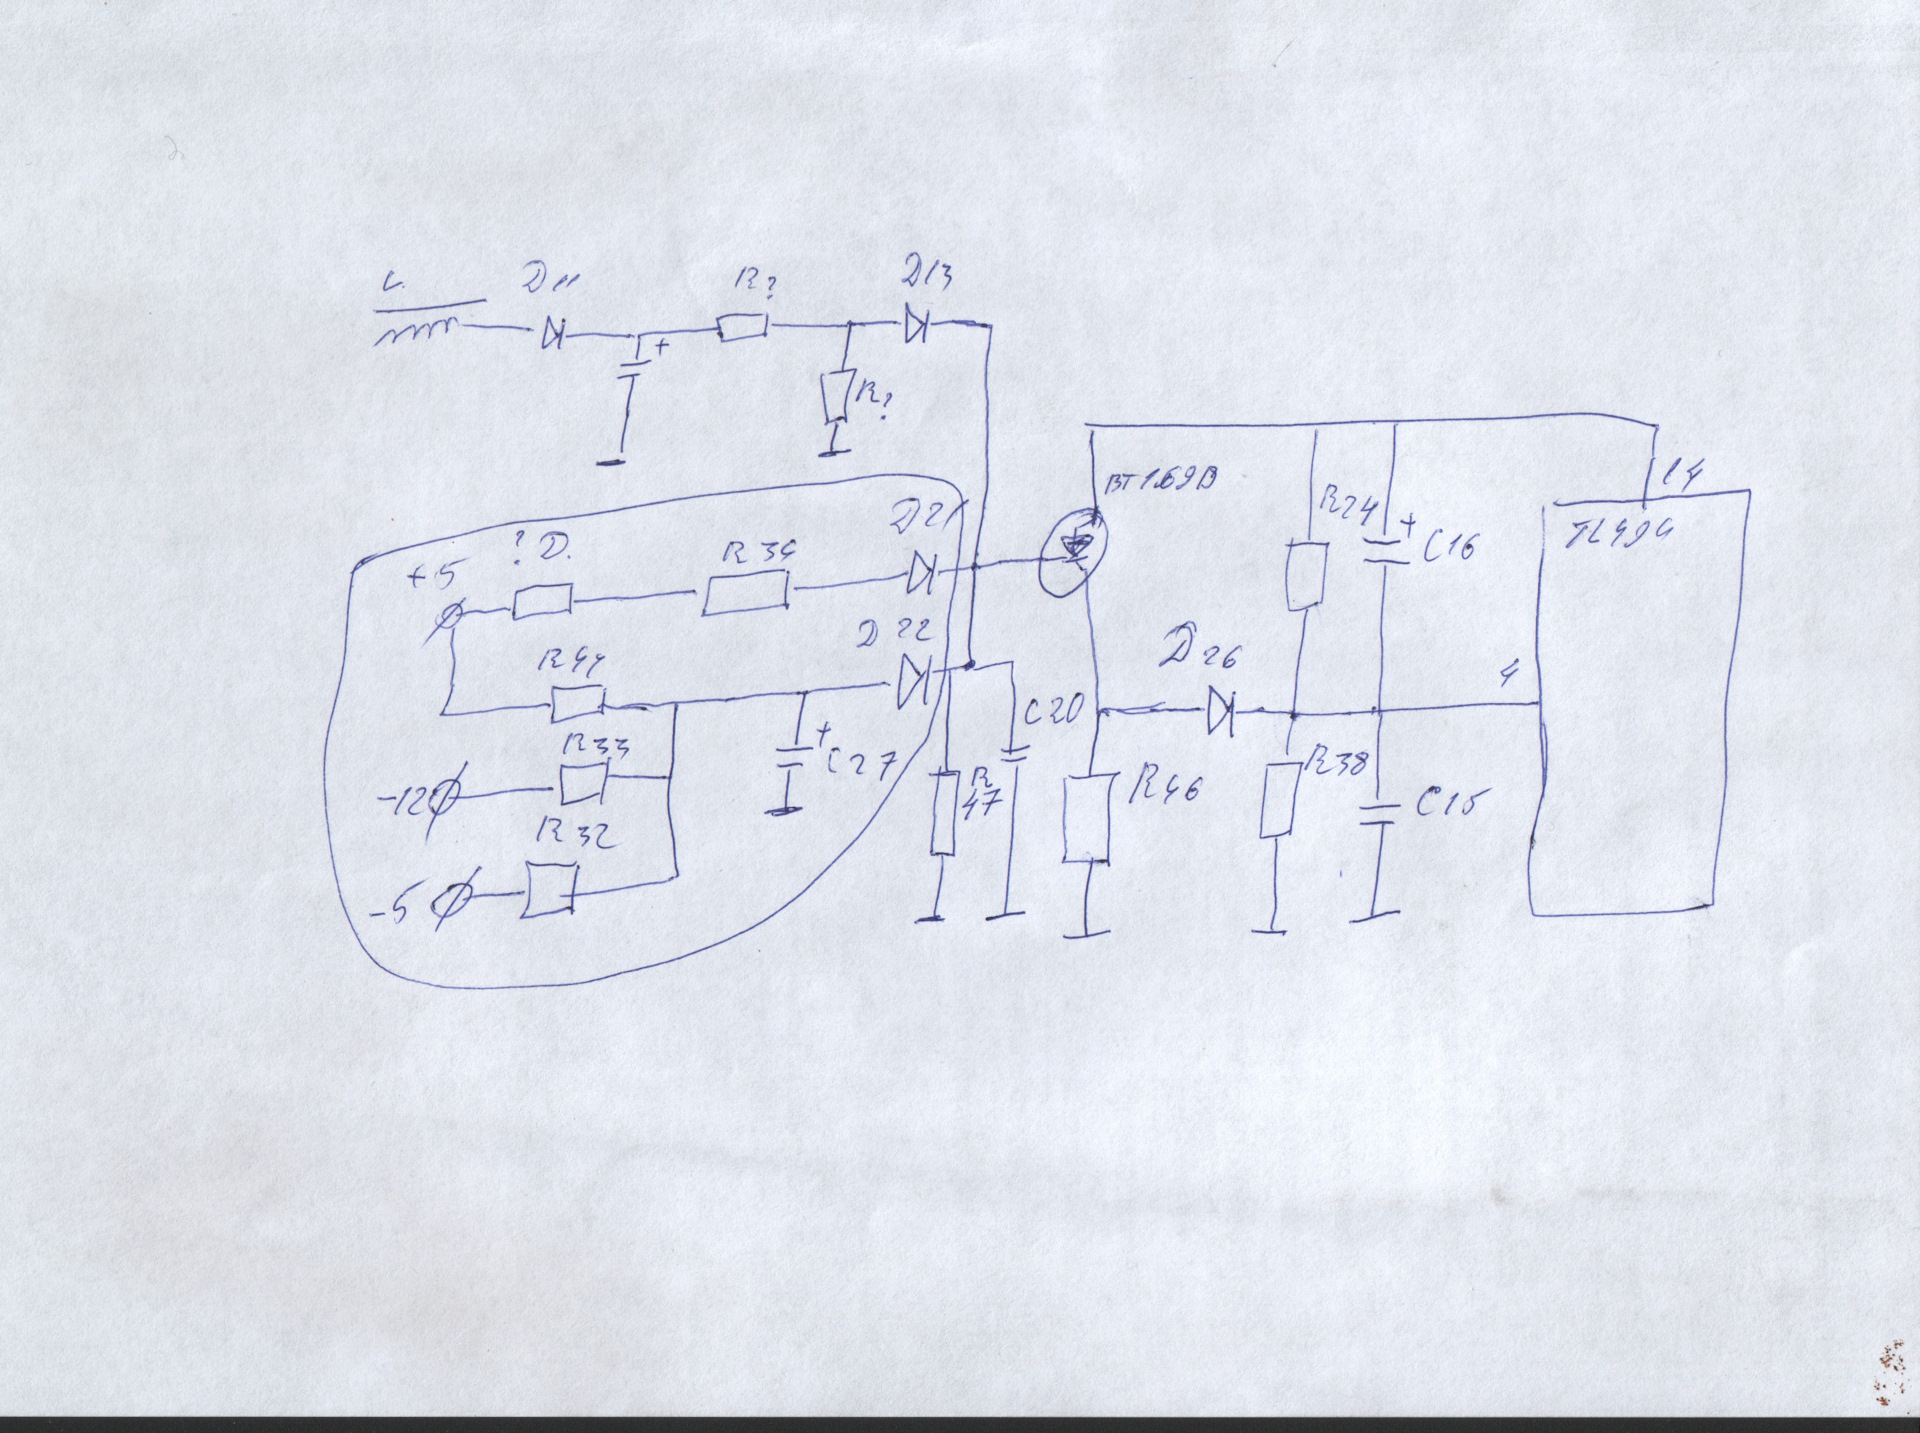 L.
D11
R?
D13
+
R?
BT169B
14
TL494
R24
+
C16
D21
? D.
R34
+5
D22
R44
D26
4
C20
+
C27
R33
-12
R
47
R46
R38
C15
R32
-5